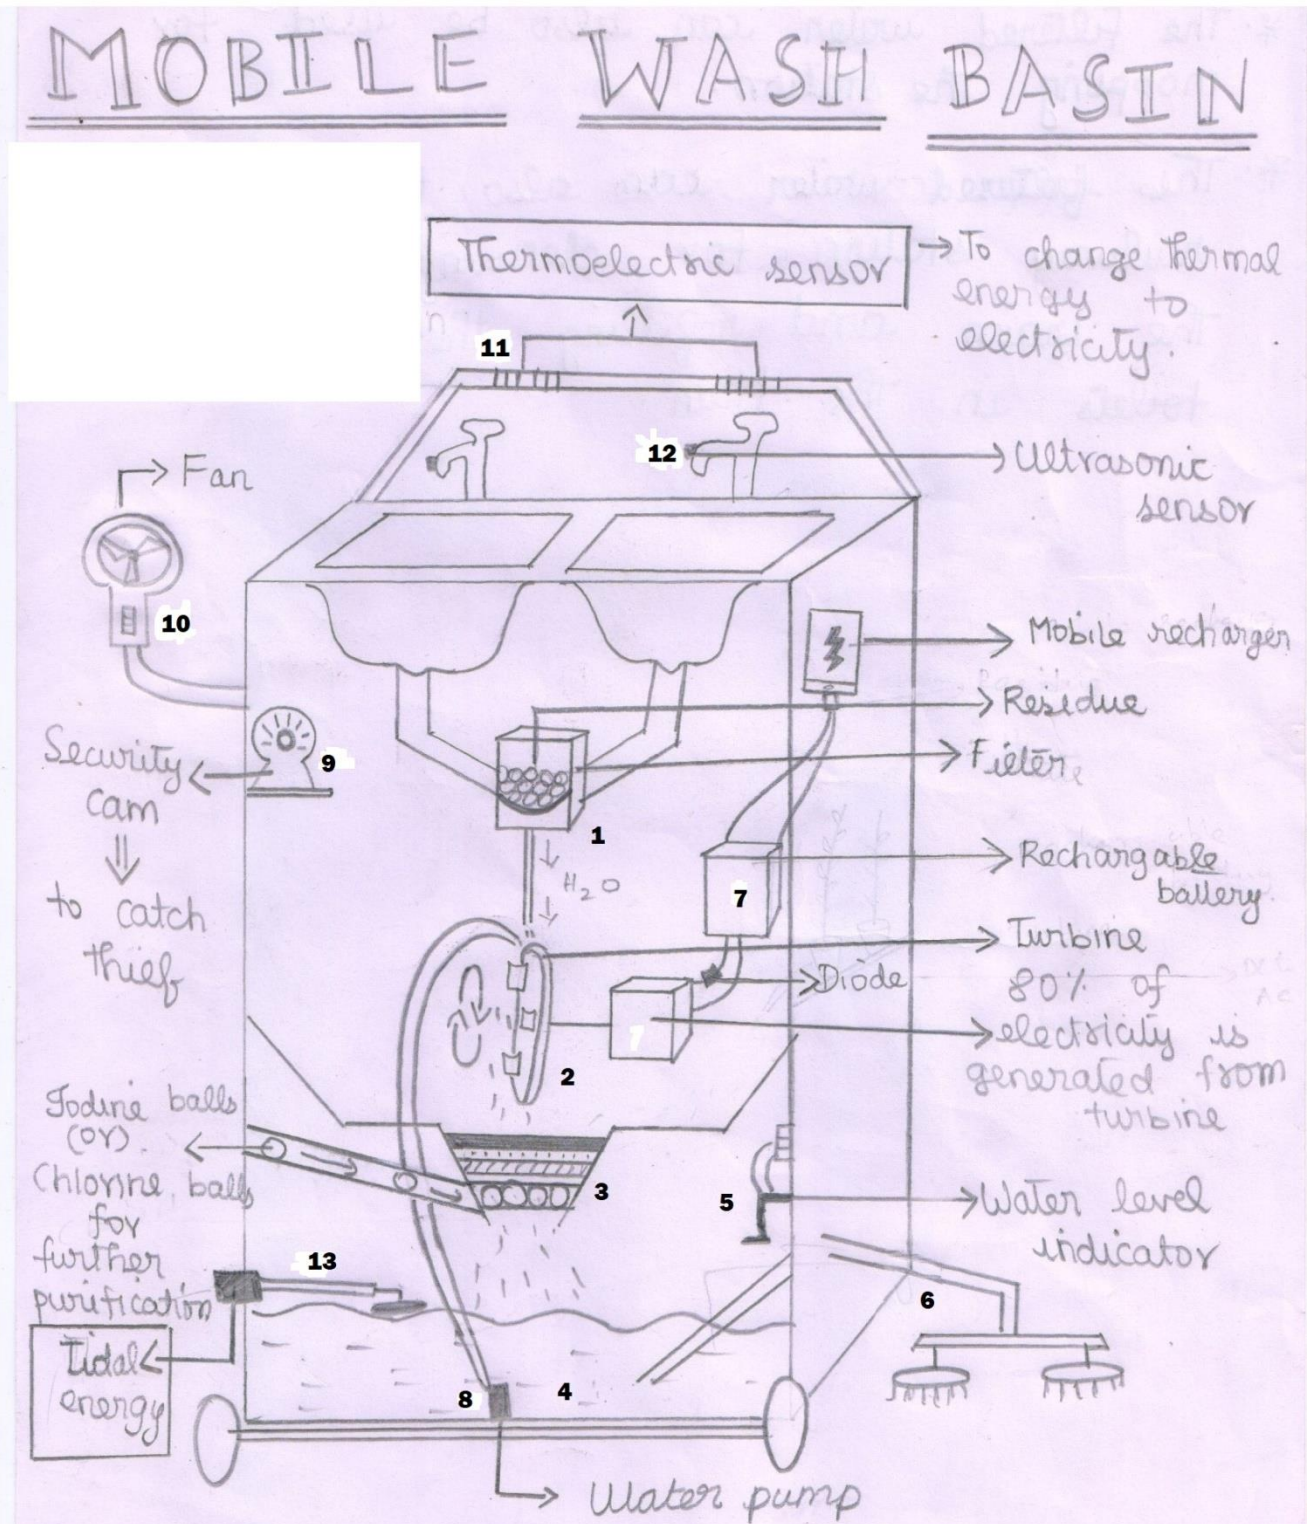 MOBILE WASH BASIN
Thermoelectric sensor
To change thermal
energy to
electricity.
11
12
Ultrasonic
sensor
Fan
10
Mobile recharger
Residue
Filter
Security
cam
to catch
thief
9
1
H2O
7
Rechargable
battery
Turbine
Diode
80% of
electricity is
generated from
turbine
2
Iodine balls
(or)
Chlorine balls
for
further
purification
3
5
Water level
indicator
13
6
Tidal
energy
8
4
Water pump